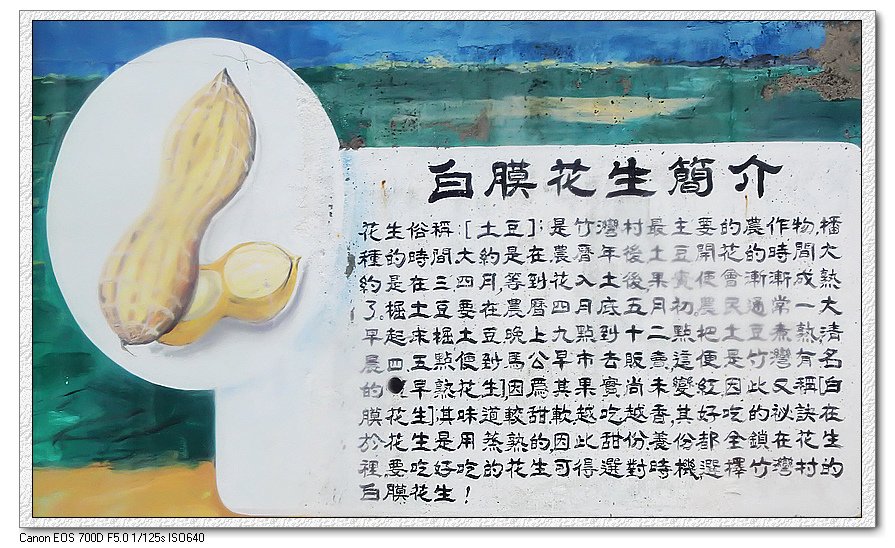 白膜花生簡介
花生俗稱:[土豆]:是竹灣村最主要的農作物,播
種的時間大約是在農曆年後土豆開花的時間大
約是在三四月,等到花入土後果實便會漸漸成熟
了.掘土豆要在農曆四月底五月初,農民通常一大
早起來掘土豆晚上九點到十二點把土豆煮熟,清
晨四五點便到馬公早市去販賣這便是竹灣有名
的早熟花生]因為其果實尚未變紅,因此又稱[白
膜花生]其味道較甜軟越吃越香,其好吃的祕訣在
於花生是用蒸熟的,因此甜份養份都全鎖在花生
裡要吃好吃的花生可得選對時機,選擇竹灣村的
白膜花生!
Canon EOS 700D F5.0 1/125s ISO640